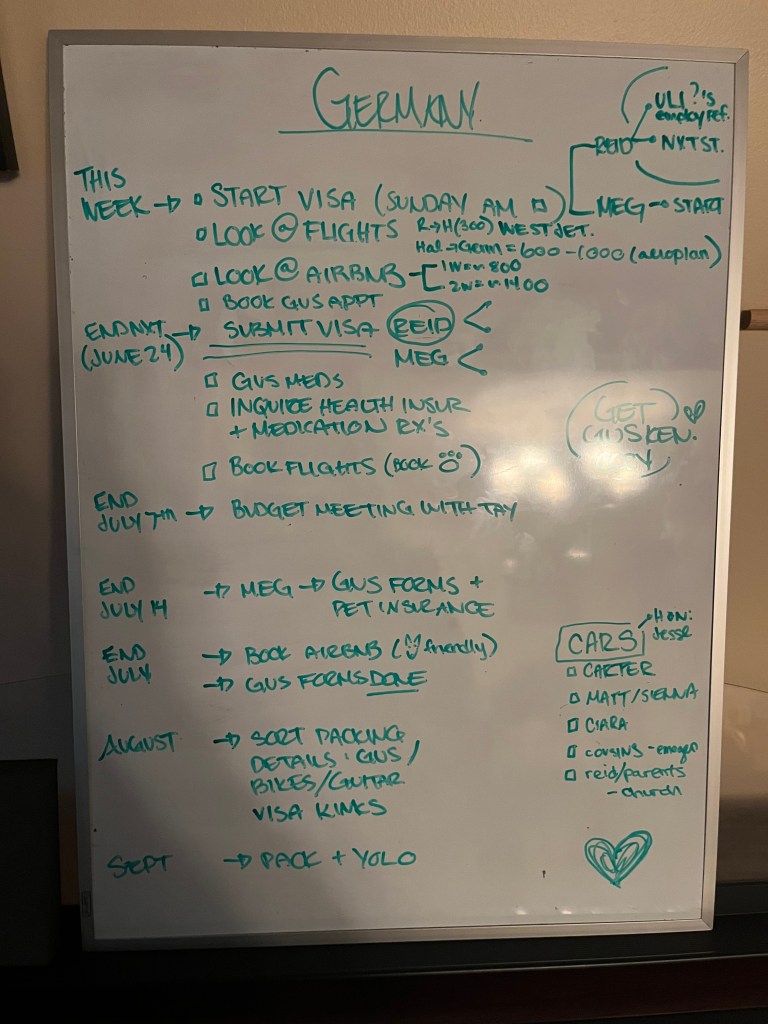 GERMANY
ULI ?'s
employ ref.
REID → NXT ST.
MEG → START
THIS
WEEK → □ START VISA (SUNDAY AM □)
□ LOOK @ FLIGHTS R→H(300) WESTJET.
Hal→Germ = 600-1000 (aeroplan)
□ LOOK @ AIRBNB 1W = ~ 800
2W = ~ 1400
□ BOOK GUS APPT
END NXT → SUBMIT VISA REID <
(JUNE 24) MEG <
□ GUS MEDS
□ INQUIRE HEALTH INSUR
+ MEDICATION RX'S
□ BOOK FLIGHTS (BOOK)
GET
GUS KEN.
END
JULY 7TH → BUDGET MEETING WITH TAY
END
JULY 14 → MEG → GUS FORMS +
PET INSURANCE
END
JULY → BOOK AIRBNB (friendly)
→ GUS FORMS DONE
AUGUST → SORT PACKING
DETAILS: GUS /
BIKES/GUITAR
VISA KINKS
SEPT → PACK + YOLO
HON:
Jesse
CARS
□ CARTER
□ MATT/SIENNA
□ CIARA
□ cousins -
□ reid/parents
- church